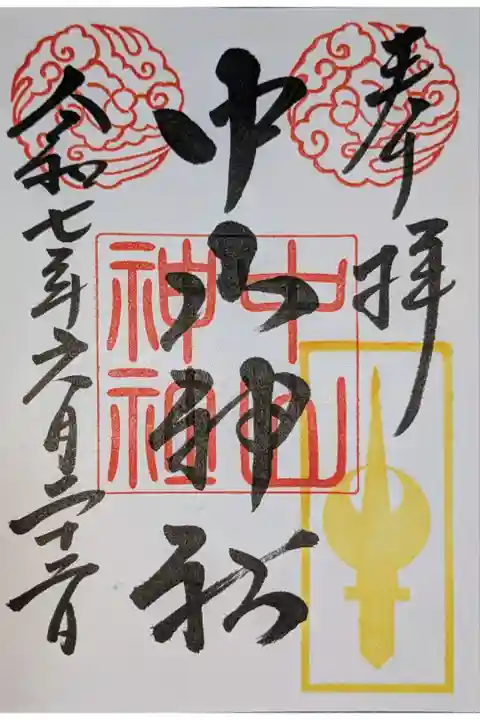 奉拝
中山神社
令和七年六月二十二日
中山
神社